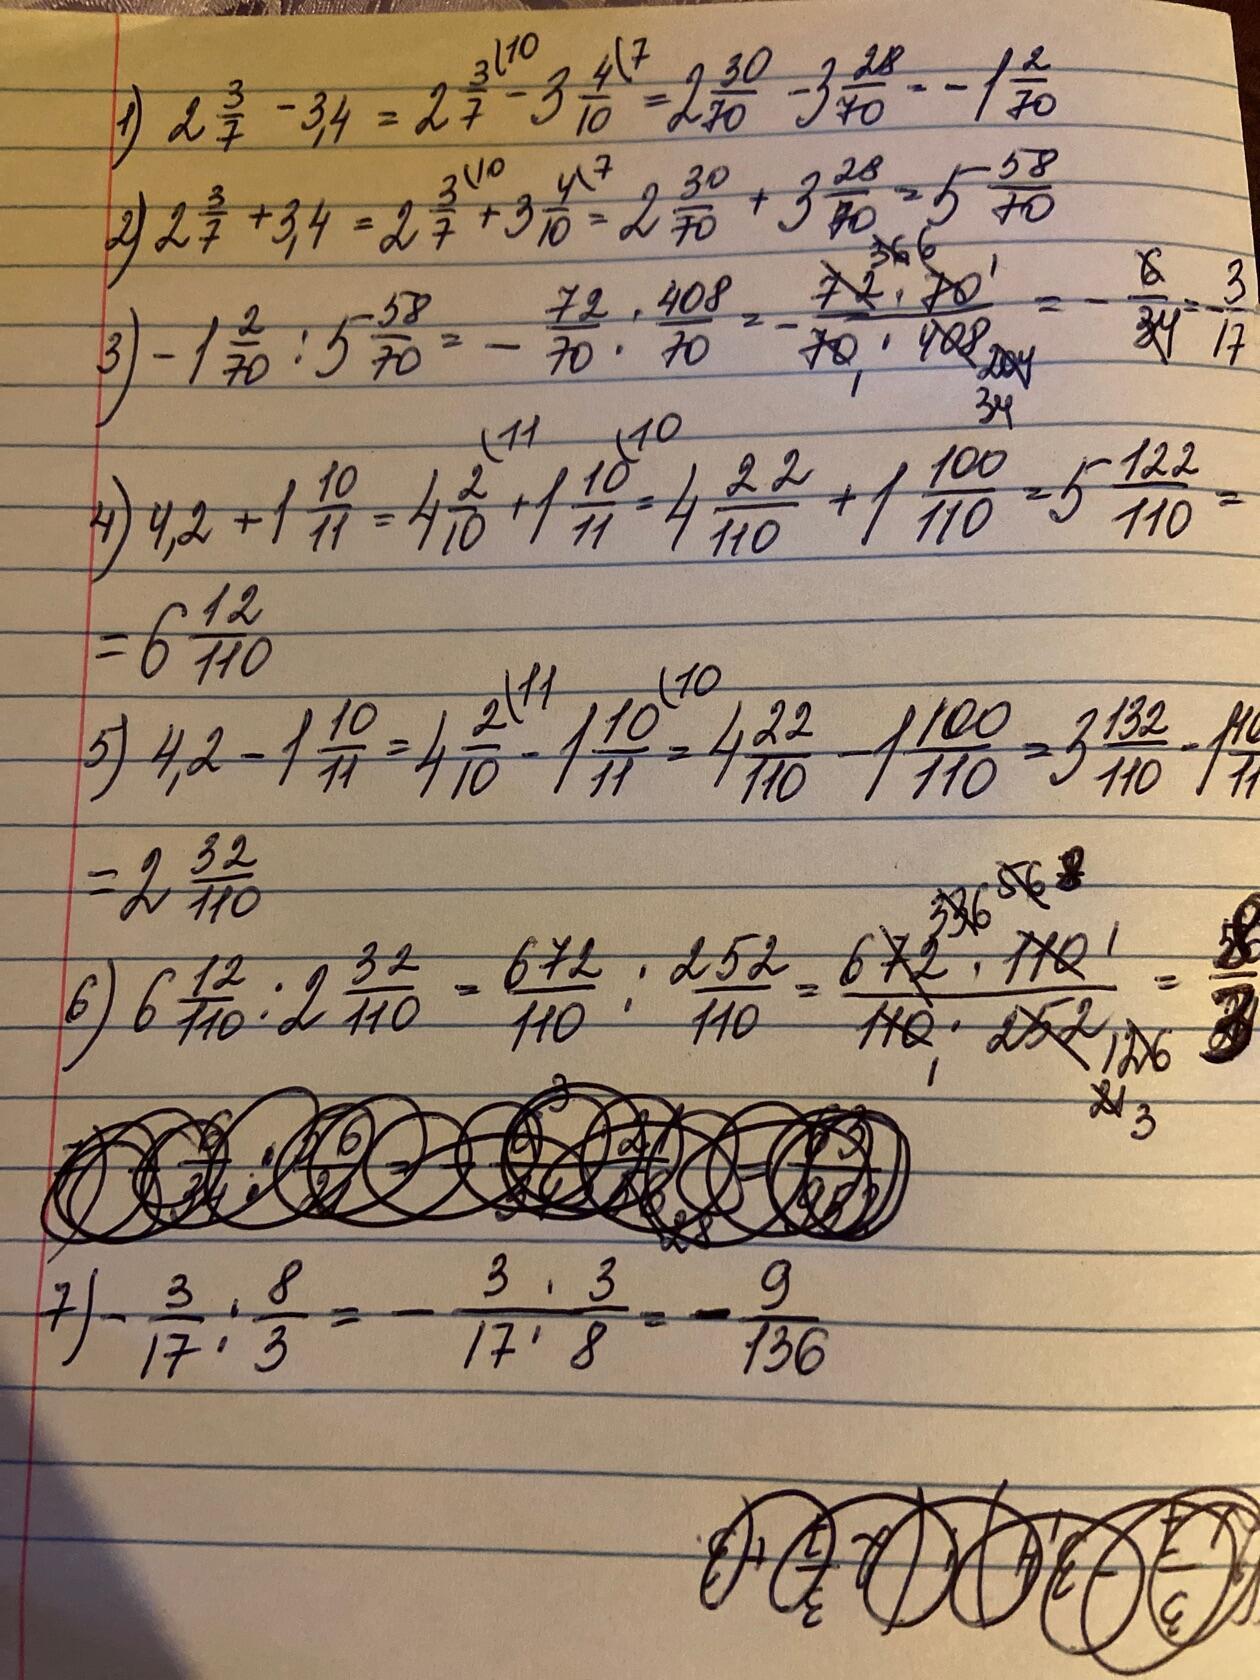 1) 2 3/7 - 3,4 = 2 3/7 (10 - 3 4/10 (7 = 2 30/70 - 3 28/70 = -1 2/70
2) 2 3/7 + 3,4 = 2 3/7 (10 + 3 4/10 (7 = 2 30/70 + 3 28/70 = 5 58/70
3) -1 2/70 : 5 58/70 = - 72/70 : 408/70 = - 72 36 6 · 70 1 / 70 1 · 408 204 34 = - 6/34 = - 3/17
4) 4,2 + 1 10/11 = 4 2/10 (11 + 1 10/11 (10 = 4 22/110 + 1 100/110 = 5 122/110 =
= 6 12/110
5) 4,2 - 1 10/11 = 4 2/10 (11 - 1 10/11 (10 = 4 22/110 - 1 100/110 = 3 132/110 - 1
= 2 32/110
6) 6 12/110 : 2 32/110 = 672/110 : 252/110 = 672 336 56 8 · 110 1 / 110 1 · 252 126 21 3 =
7) - 3/17 : 8/3 = - 3 · 3 / 17 · 8 = - 9/136